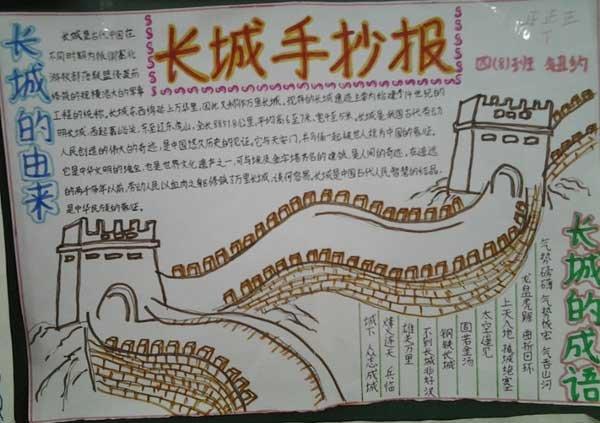 长城手抄报
四(8)班
长城的由来
长城是古代中国在
不同时期为抵御塞北
游牧部落联盟侵袭而
修筑的规模浩大的军事
工程的统称。长城东西绵延上万华里,因此又称作万里长城。现存的长城遗迹主要为始建于14世纪的
明长城,西起嘉峪关,东至辽东虎山,全长8851.8公里,平均高6至7米,宽4至5米。长城是我国古代劳动
人民创造的伟大的奇迹,是中国悠久历史的见证。它与天安门,兵马俑一起被世人视为中国的象征。
的两千多年以前,劳动人民以血肉之躯修筑了万里长城,
长城是中国古代人民智慧的结晶,
是中华民族的象征。
长城的成语
气势磅礴 气势恢宏 气吞山河
龙盘虎踞 曲折回环
上天入地
太空遥见
固若金汤
钢铁长城
不到长城非好汉
雄关万里
烽火连天 兵临
城下 众志成城